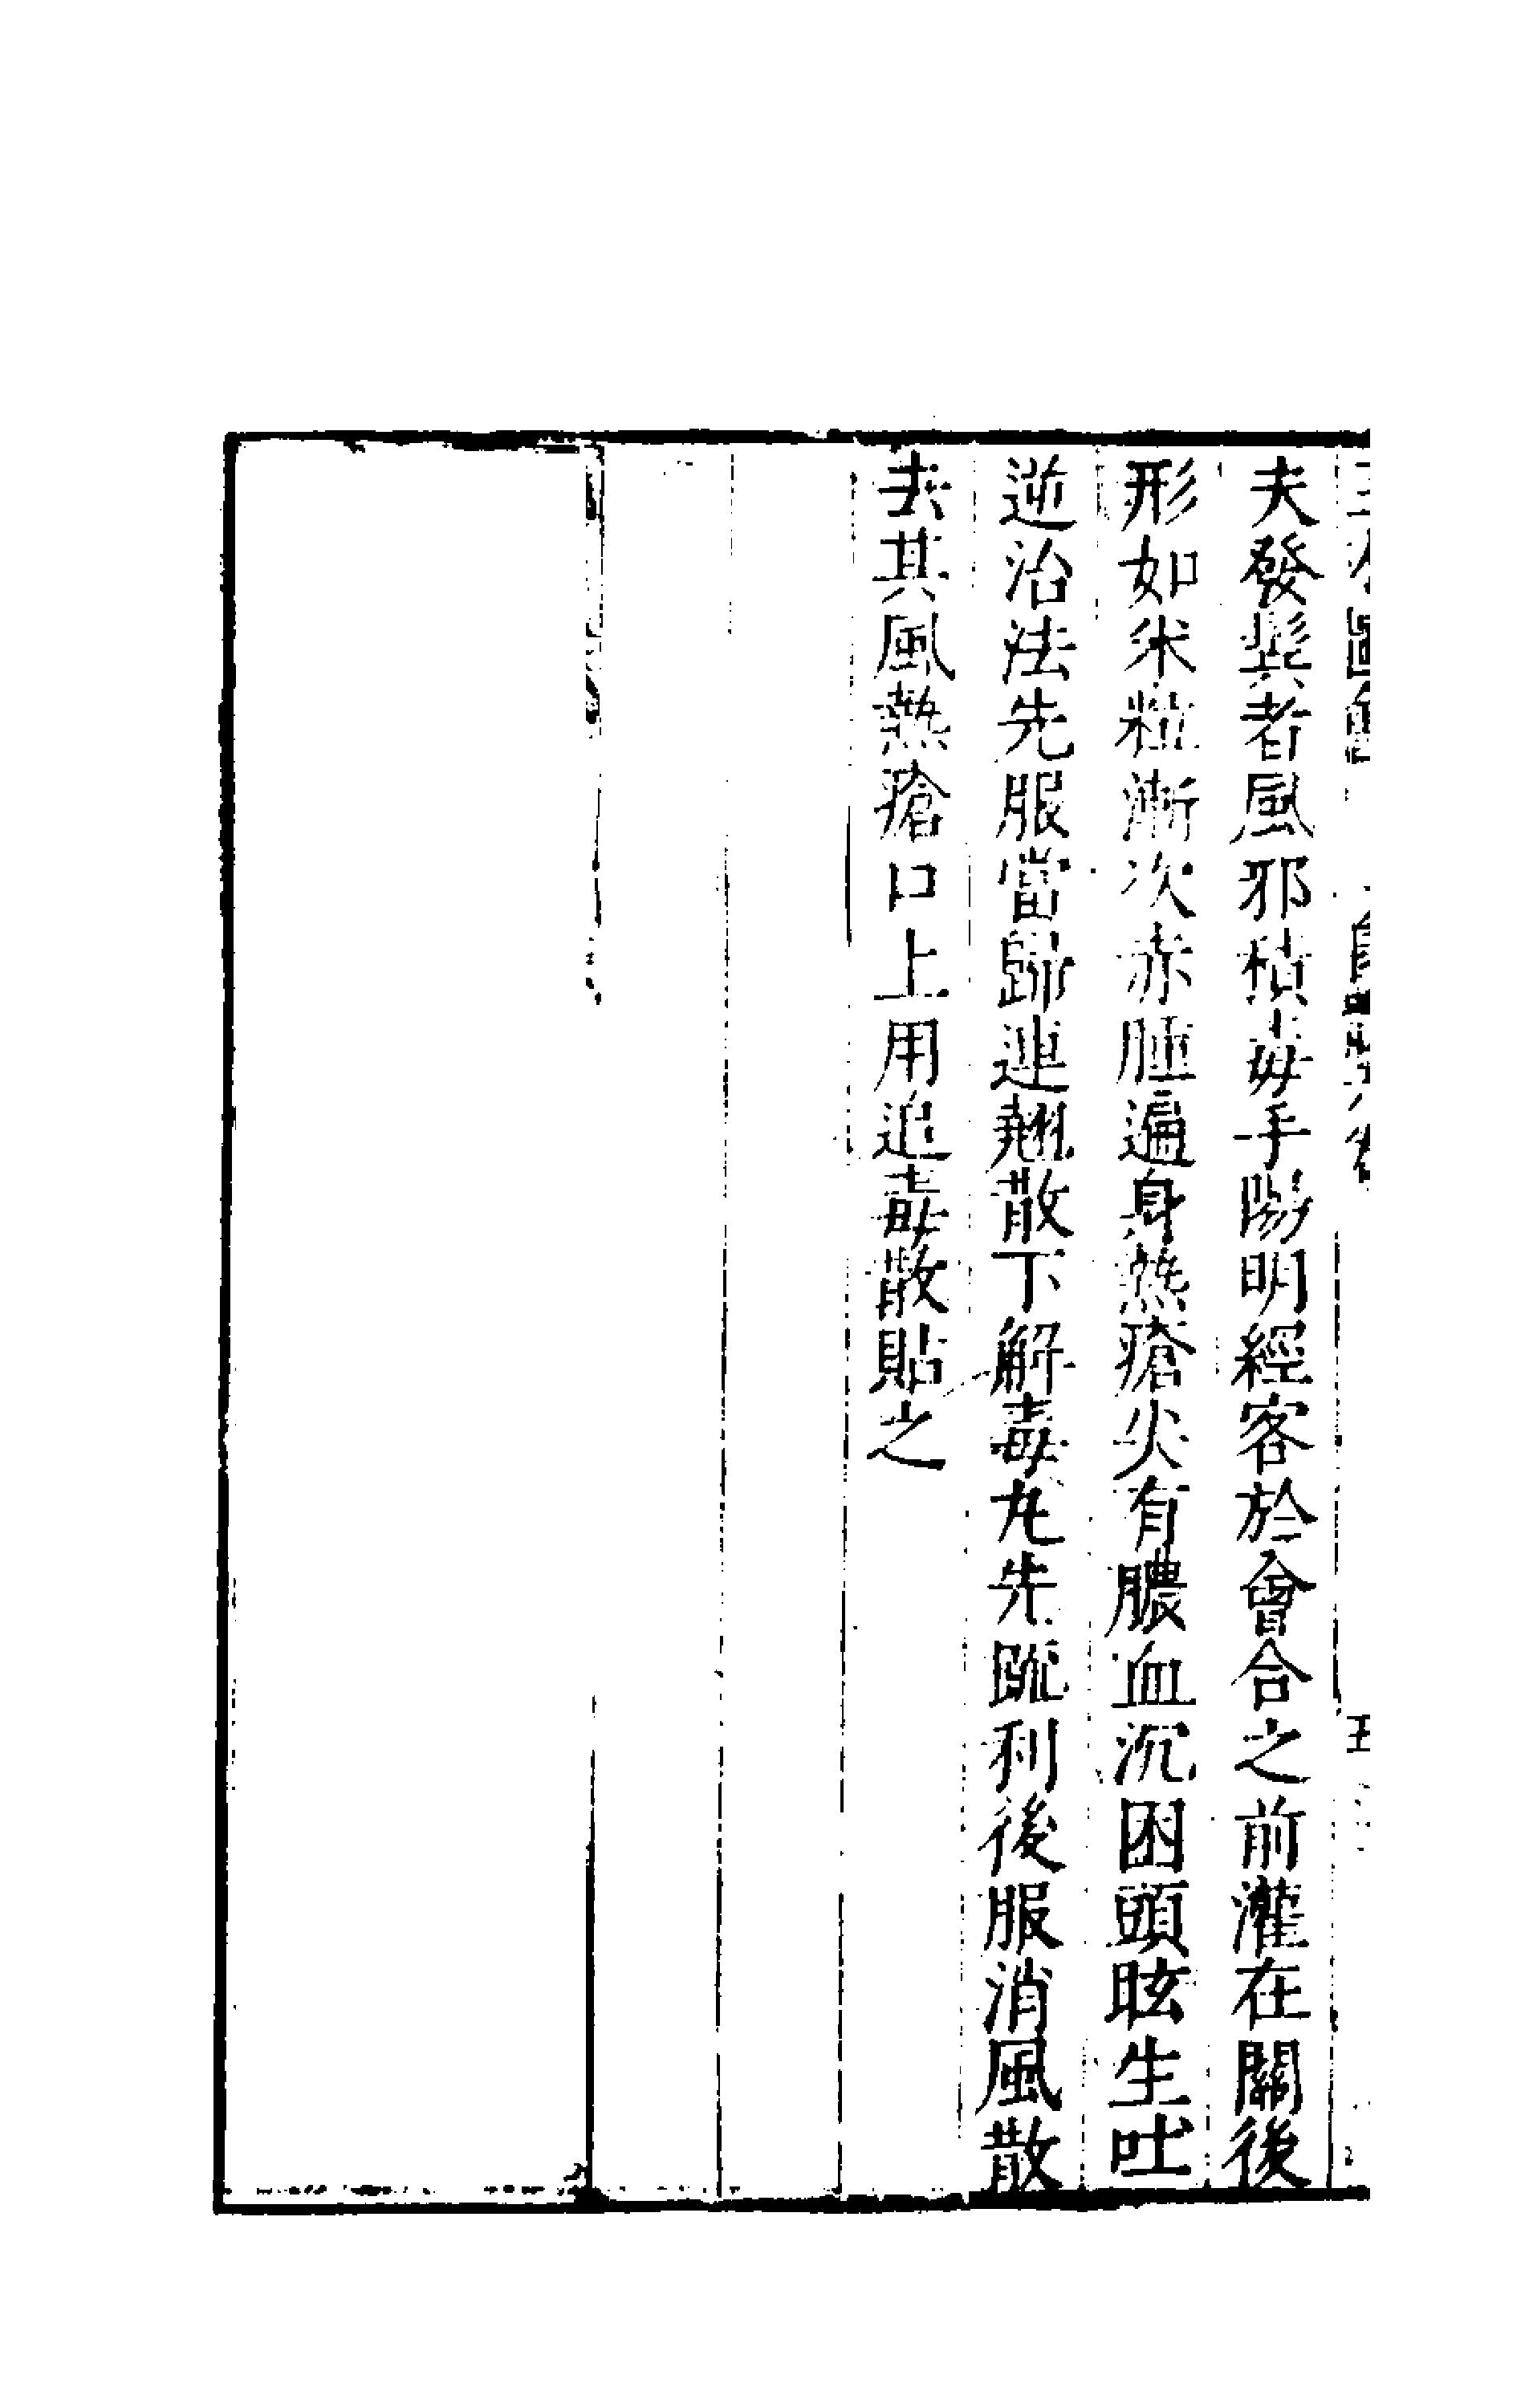 夫發鬓者風邪積毒手陽明經客於會合之前灌在關後
形如米粒漸次赤腫遍身熱瘡尖有膿血沉困頭眩生吐
逆治法先服當歸連翹散下解毒丸先䟽利後服消風散
去其風熱瘡口上用追毒散貼之